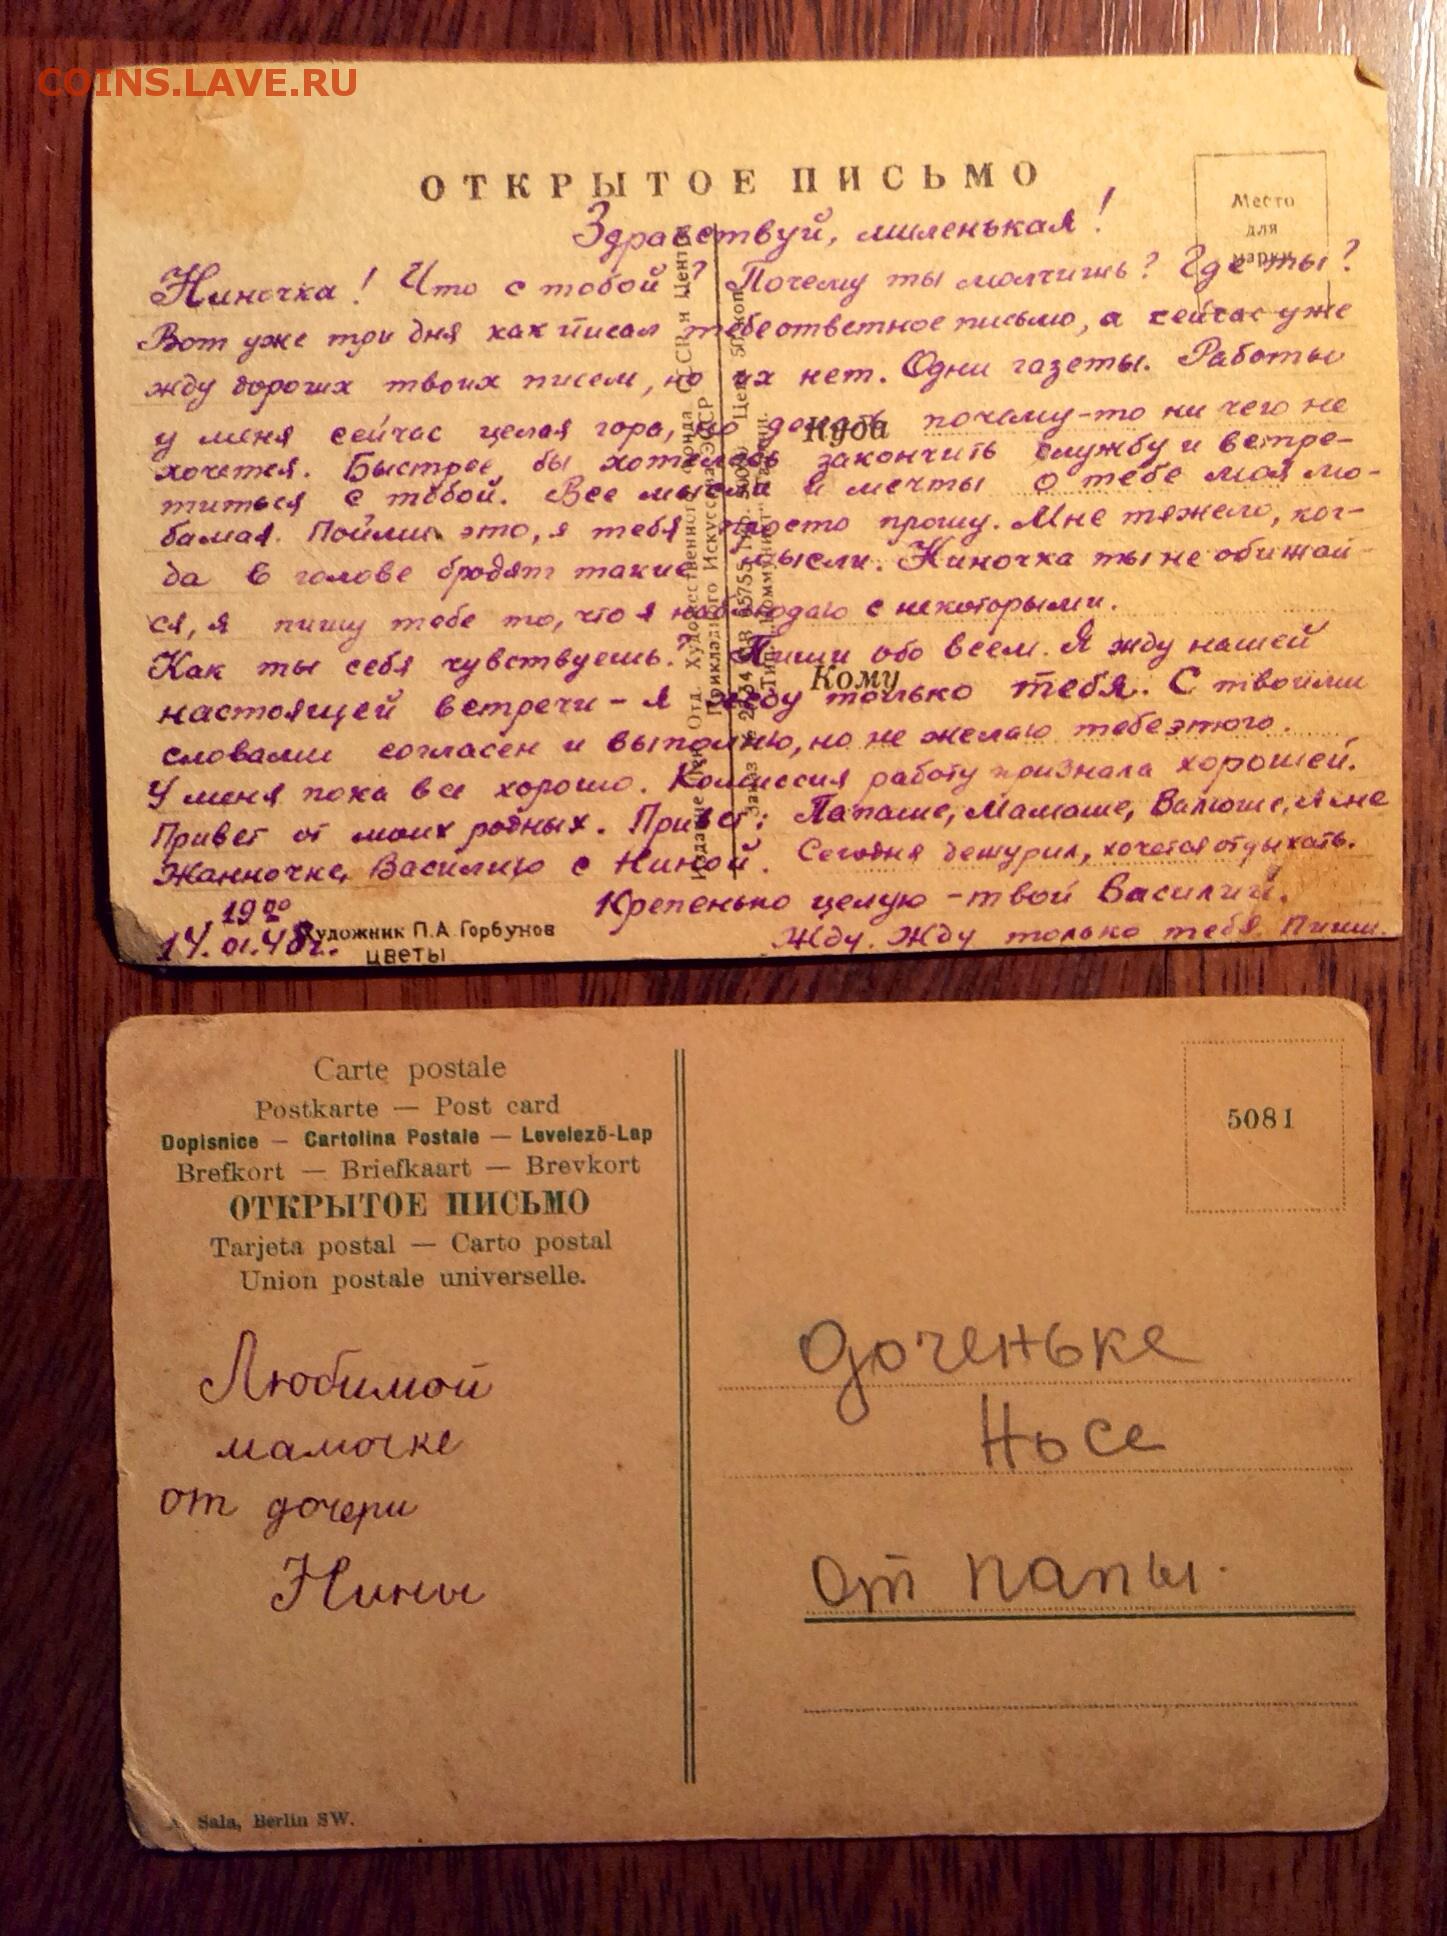 COINS.LAVE.RU
ОТКРЫТОЕ ПИСЬМО
Место
для
марки
Здравствуй, миленькая!
Ниночка! Что с тобой? Почему ты молчишь? Где ты?
Вот уже три дня как писал тебе ответное письмо, а сейчас уже
жду дорогих твоих писем, но их нет. Одни газеты. Работы
у меня сейчас целая гора, но делать почему-то ни чего не
хочется. Быстрее бы хотелось закончить службу и встре-
титься с тобой. Все мысли и мечты о тебе моя лю-
бимая. Пойми это, я тебя просто прошу. Мне тяжело, ког-
да в голове бродят такие мысли. Ниночка ты не обижай-
ся, я пишу тебе то, что я наблюдаю с некоторыми.
Как ты себя чувствуешь? Пиши обо всем. Я жду нашей
настоящей встречи - я жду только тебя. С твоими
словами согласен и выполню, но не желаю тебе этого.
У меня пока все хорошо. Комиссия работу признала хорошей.
Привет от моих родных. Привет: Папаше, Мамаше, Валюше,
Жанночке, Василию с Ниной. Сегодня дежурил, хочется отдыхать.
Крепенько целую - твой Василий.
Жду. Жду только тебя. Пиши.
19 00
14.01.48г.
Куда
Кому
Художник П.А. Горбунов
ЦВЕТЫ
Carte postale
Postkarte — Post card
Dopisnice — Cartolina Postale — Levelező-Lap
Brefkort — Briefkaart — Brevkort
ОТКРЫТОЕ ПИСЬМО
Tarjeta postal — Carto postal
Union postale universelle.
Любимой
мамочке
от дочери
Нины
Sala, Berlin SW.
5081
Доченьке
Нюсе
От папы.